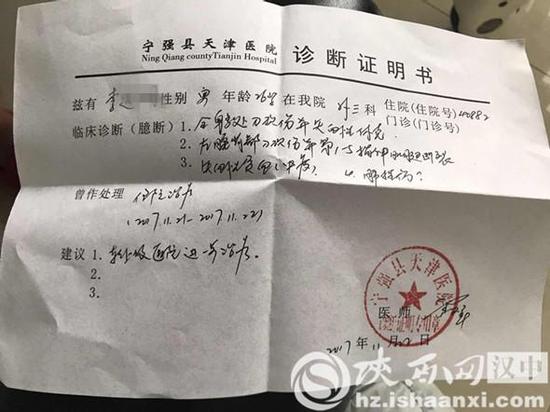 宁强县天津医院
Ning Qiang countyTianjin Hospital
诊断证明书
兹有 李 性别 男 年龄 26岁 在我院 外三科 住院(住院号)
门诊(门诊号)
临床诊断(臆断) 1. 全身多处刀砍伤伴失血性休克
2. 右腕背部刀砍伤伴第
3. 失血性贫血(中度) 4. 肺挫伤?
曾作处理 住院治疗
(2017.11.21-2017.11.22)
建议 1. 转上级医院进一步治疗。
2.
3.
宁强县天津医院
诊断证明专用章
医师
2017年11月22日
陕西网 汉中
hz.ishaanxi.com